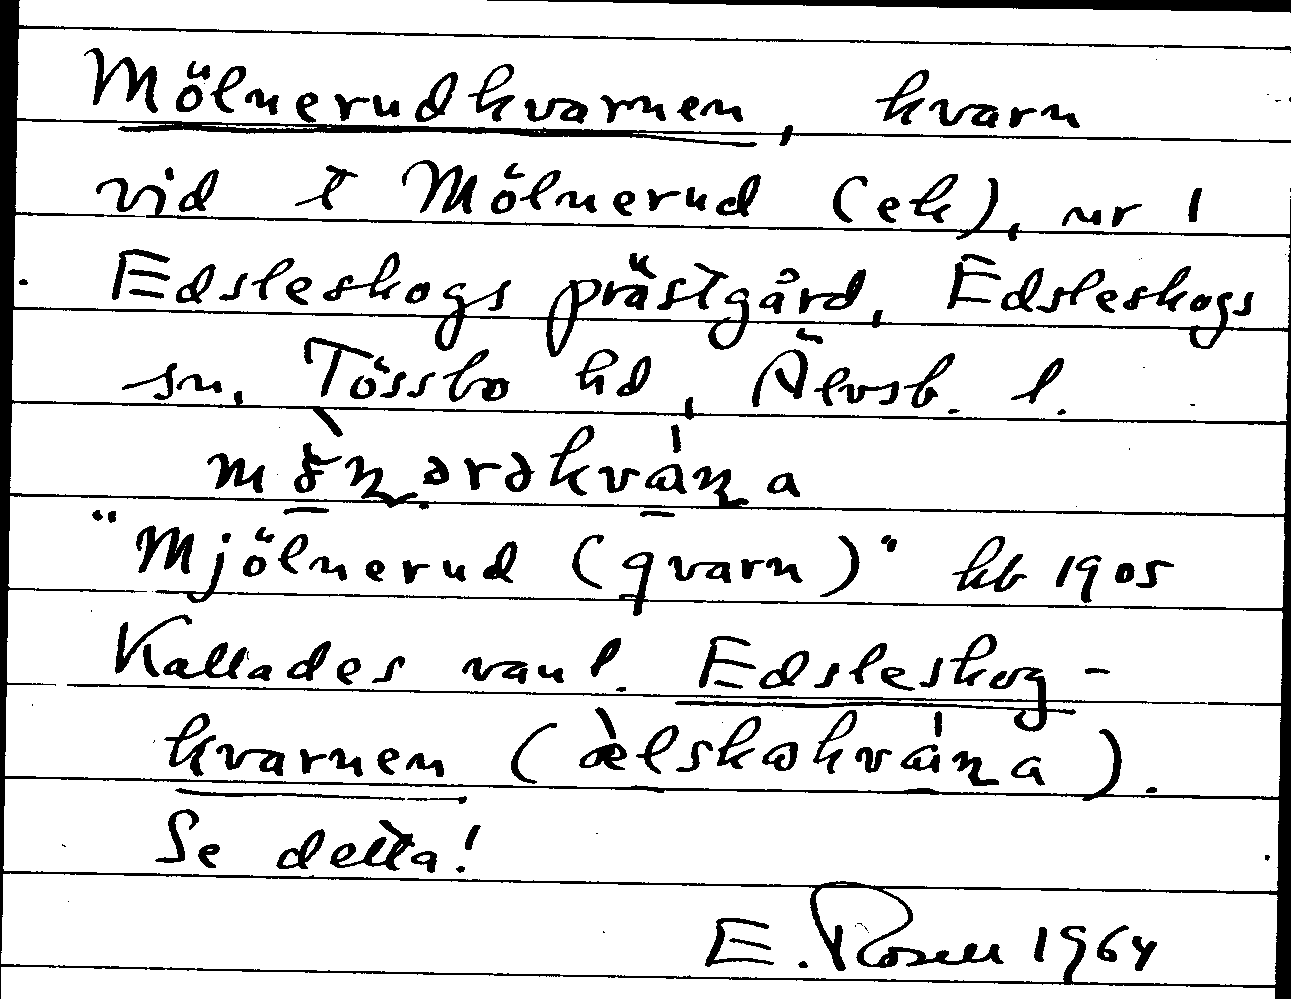 Mölnerudkvarnen, kvarn
vid t Mölnerud (ek), nr 1
Edsleskogs prästgård, Edsleskogs
sn, Tössbo hd, Älvsb. l.
"Mjölnerud (qvarn)" kb 1905
Kallades vanl. Edsleskog-
kvarnen (                ).
Se detta!
E. Rosell 1964